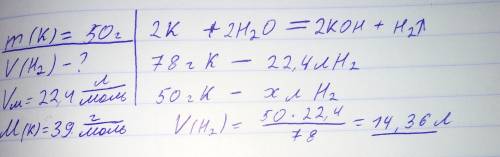 m(K) = 50г
V(H₂) - ?
Vм = 22,4 л/моль
M(K) = 39 г/моль
2K + 2H₂O = 2KOH + H₂↑
78г K – 22,4л H₂
50г K – x л H₂
V(H₂) = 50 · 22,4 / 78 = 14,36 л